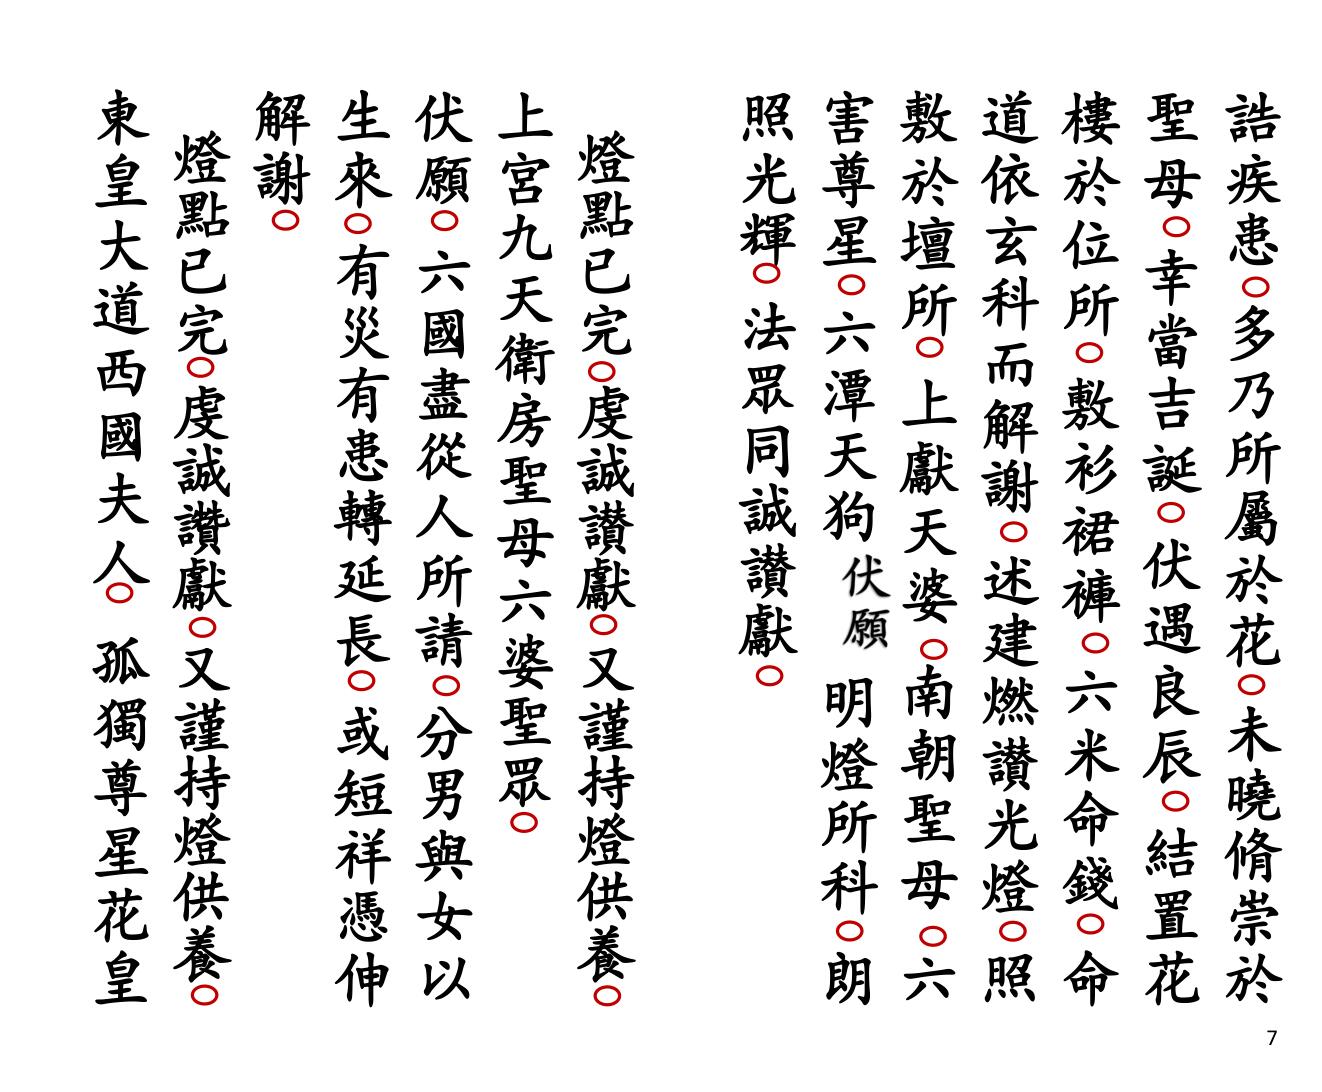 誥疾患○多乃所屬於花○未曉脩崇於
聖母○幸當吉誕○伏遇良辰○結置花
樓於位所○敷衫裙褲○六米命錢○命
道依玄科而解謝○述建燃讃光燈○照
敷於壇所○上獻天婆○南朝聖母○六
害尊星○六潭天狗伏願明燈所科○朗
照光輝○法眾同誠讃獻○
燈點已完○虔誠讃獻○又謹持燈供養○
上宮九天衛房聖母六婆聖眾○
伏願○六國盡從人所請○分男與女以
生來○有災有患轉延長○或短祥憑伸
解謝○
燈點已完○虔誠讚獻○又謹持燈供養○
東皇大道西國夫人○孤獨尊星花皇
7